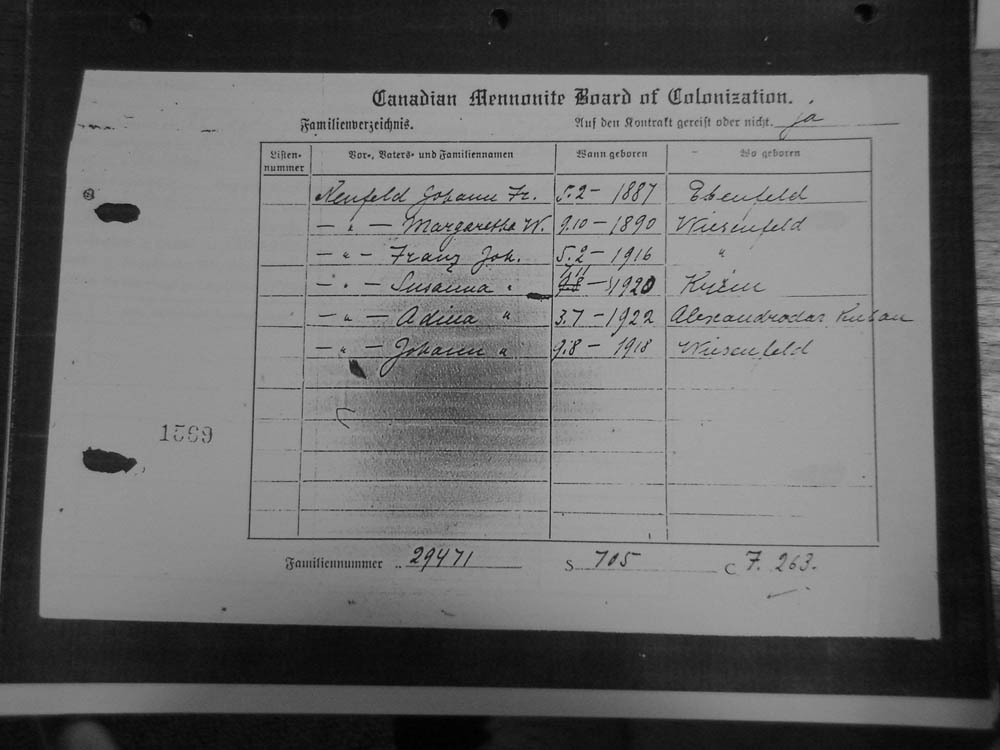 Canadian Mennonite Board of Colonization.
Familienverzeichnis. Auf den Kontrakt gereist oder nicht. ja
Listen-nummer Vor-, Vaters- und Familiennamen Wann geboren Wo geboren
Neufeld Johann Fr. 5.2 – 1887 Ebenfeld
— " — Margaretha W. 9.10 – 1890 Wiesenfeld
— " — Franz Joh. 5.2 – 1916 "
— " — Susanna " – 1920
— " — Adina " 3.7 – 1922 Alexandrodar Kuban
— " — Johann " 9.8 – 1918 Wiesenfeld
1569
Familiennummer 29471 S 705 C 7. 263.